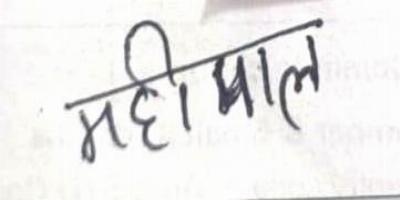 महीपाल